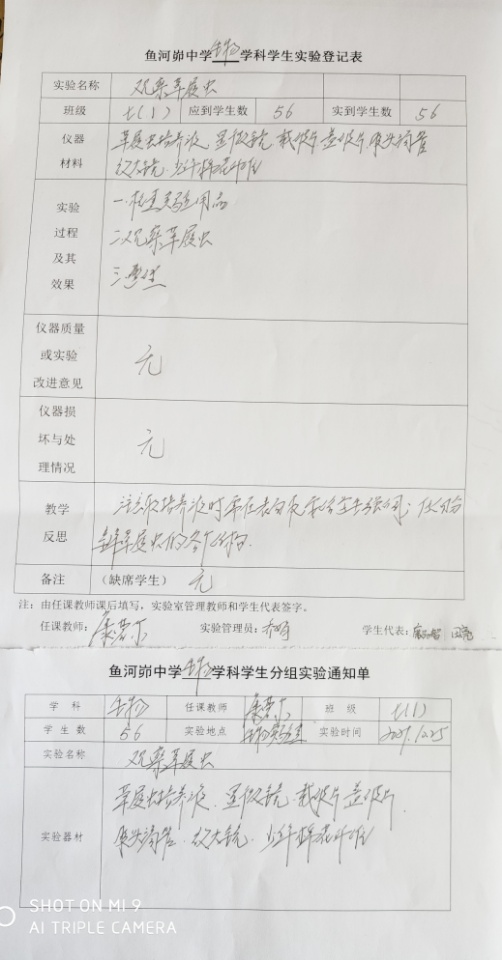 鱼河峁中学生物学科学生实验登记表
实验名称 观察草履虫
班级 七(1) 应到学生数 56 实到学生数 56
仪器材料 草履虫培养液 显微镜 载玻片 盖玻片 胶头滴管
放大镜 少许棉花纤维
实验过程及其效果 一.检查实验用品
二.观察草履虫
三.整理
仪器质量或实验改进意见 无
仪器损坏与处理情况 无
教学反思 注意取培养液时应在表面
草履虫的各个结构.
备注 (缺席学生) 无
注:由任课教师课后填写,实验室管理教师和学生代表签字。
任课教师: 实验管理员: 学生代表:
鱼河峁中学生物学科学生分组实验通知单
学 科 生物 任课教师 班 级 七(1)
学 生 数 56 实验地点 生物实验室 实验时间
实验名称 观察草履虫
实验器材 草履虫培养液.显微镜.载玻片 盖玻片.
胶头滴管.放大镜.少许棉花纤维
SHOT ON MI 9
AI TRIPLE CAMERA